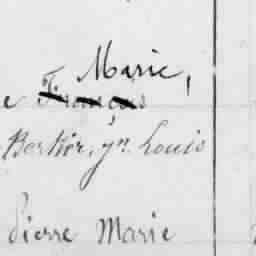 Marie,
e François
Bertier, jn. Louis
Pierre Marie